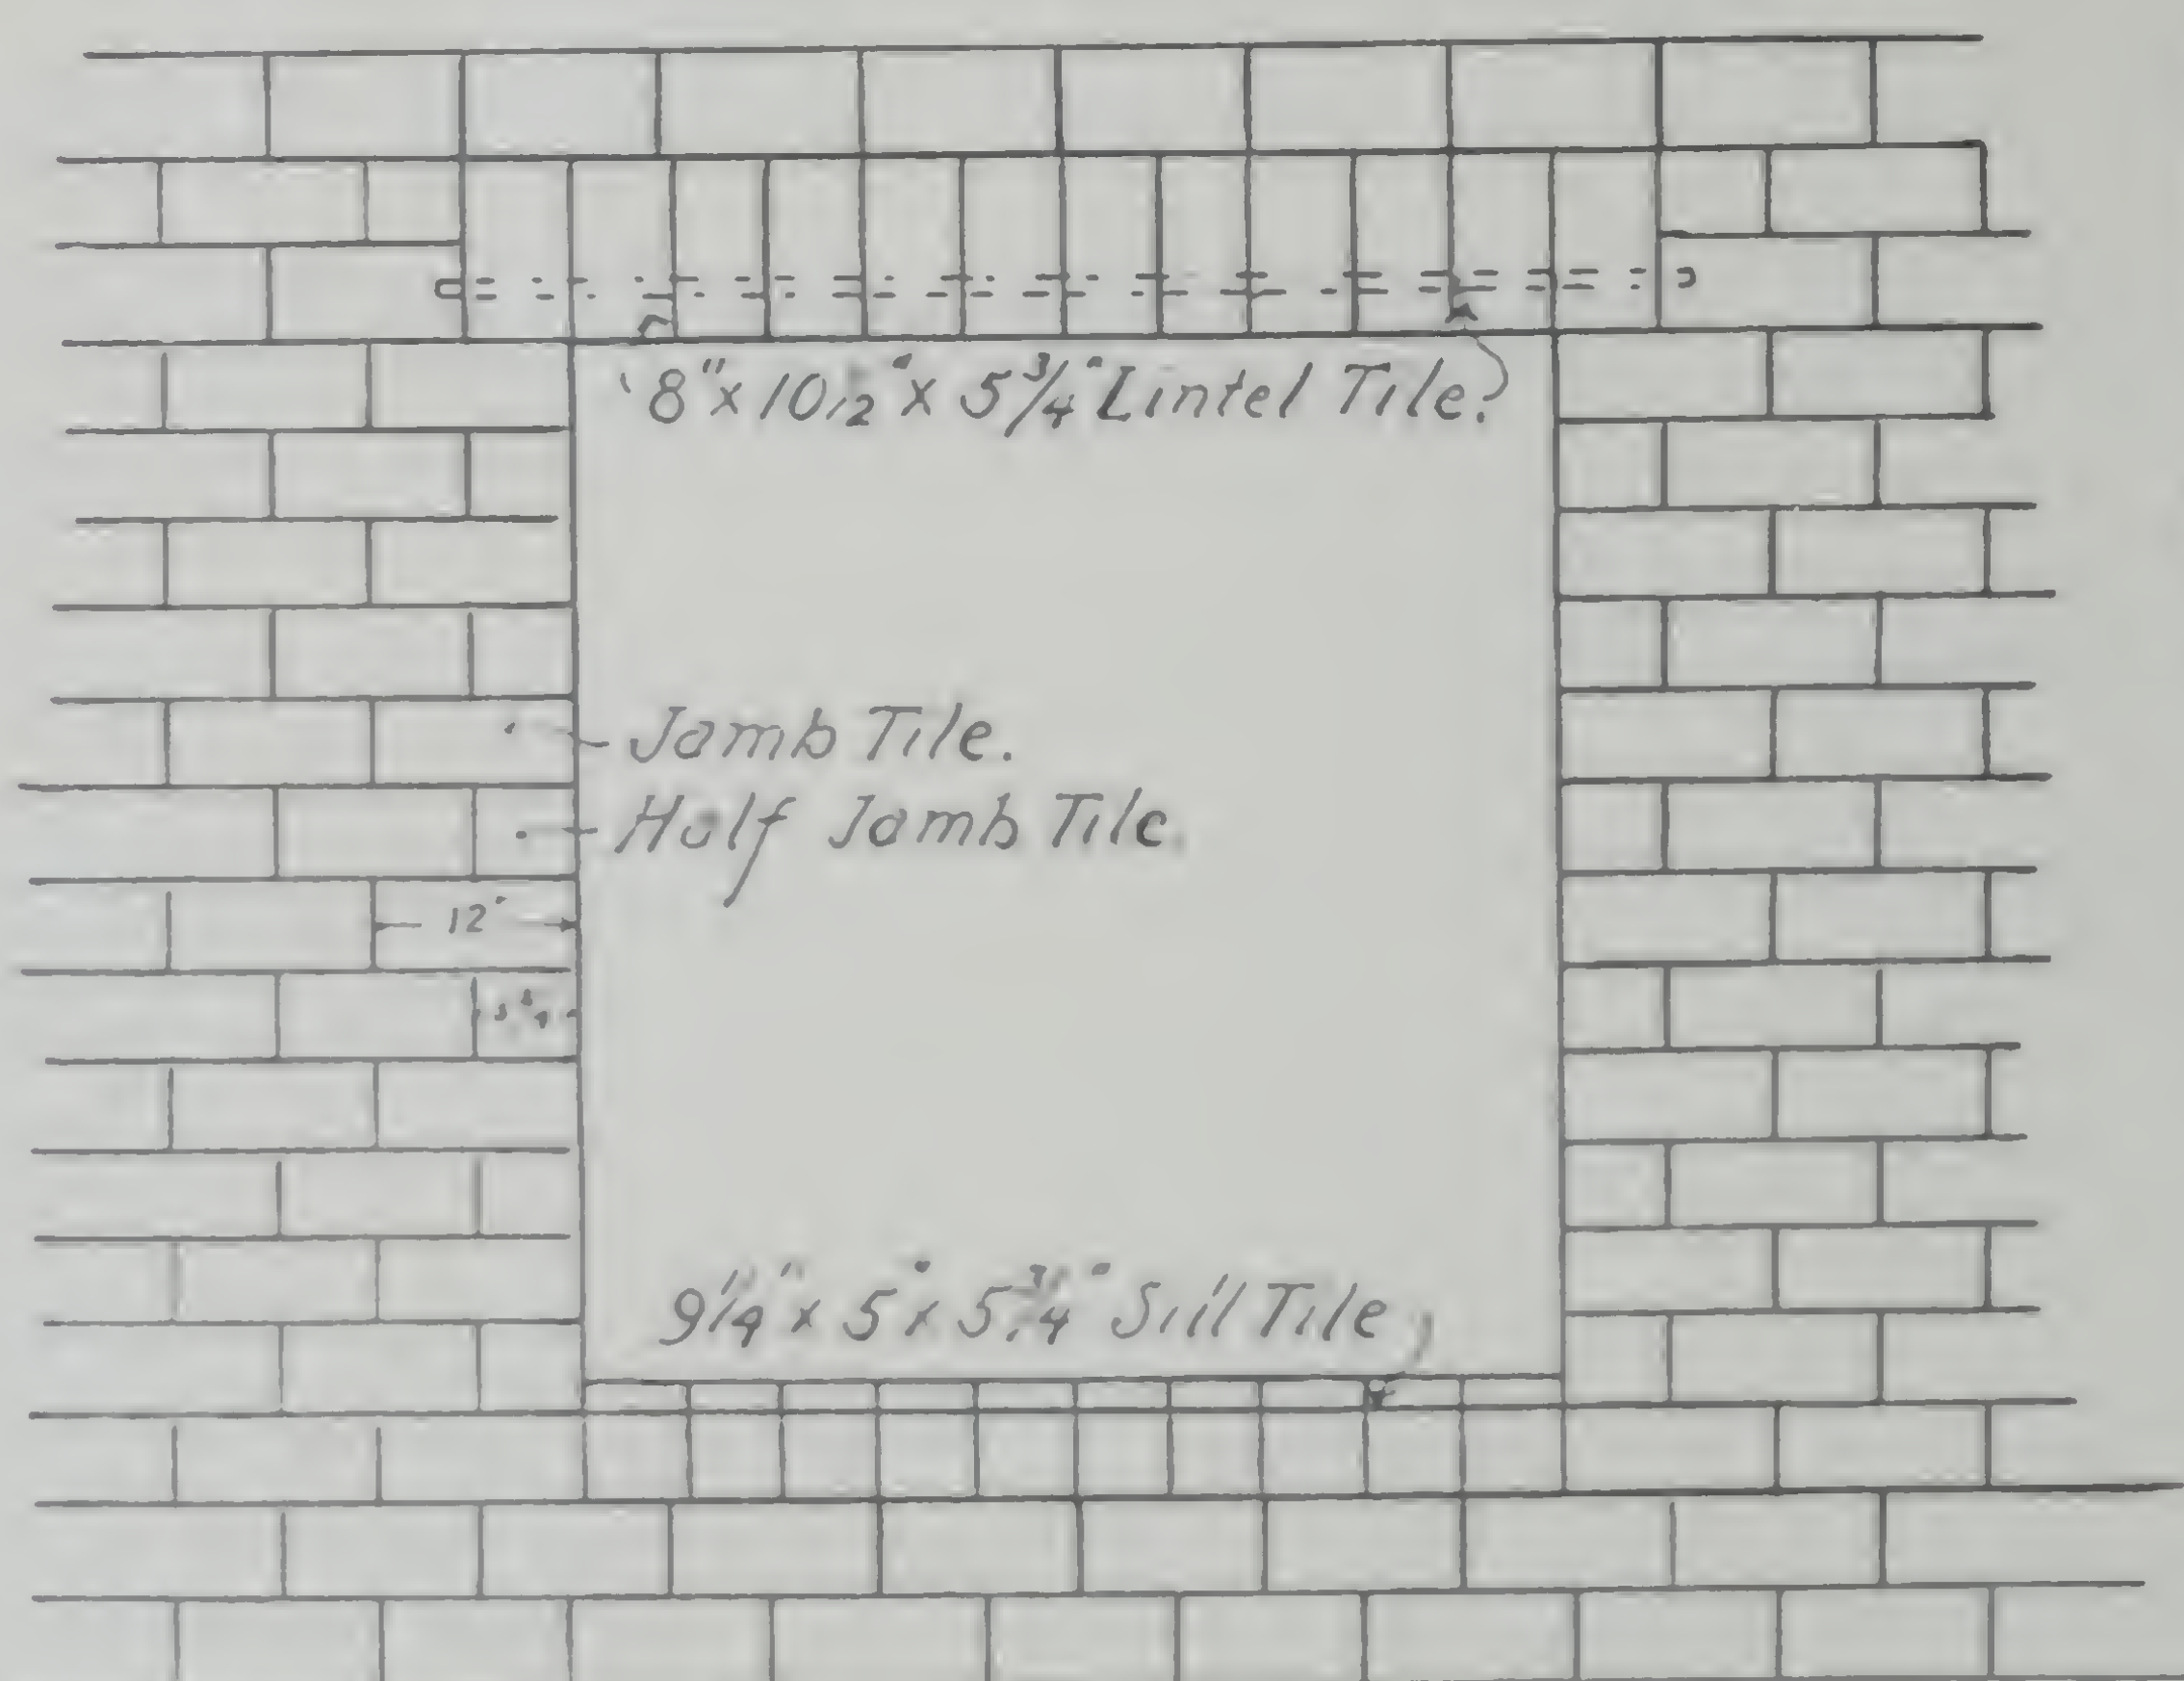 8" x 10 1/2" x 5 3/4" Lintel Tile.
Jamb Tile.
Half Jamb Tile.
12"
5 3/4
9 1/4" x 5" x 5 3/4" Sill Tile